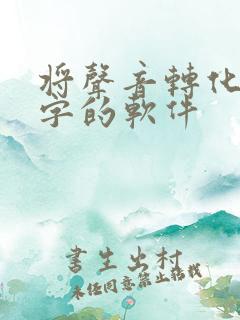 将聲音轉化
字的軟件
書生出村
未经同意禁止搭載